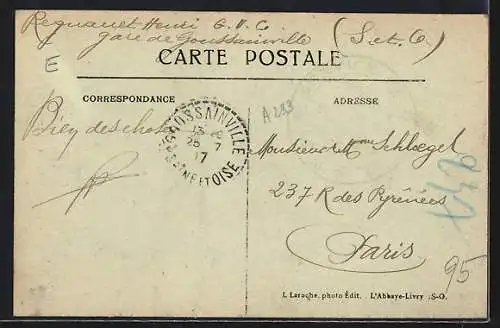 Regnault Henri G.V.C.
gare de Goussainville (S.et.O.)
E
CARTE POSTALE
CORRESPONDANCE
ADRESSE
Bien des choses
GOUSSAINVILLE
25 7
17
SEINE ET OISE
A 283
Monsieur et Mme Schloegel
237 R des Pyrénées
Paris
95
L Larache, photo Édit. . L'Abbaye-Livry S.-O.